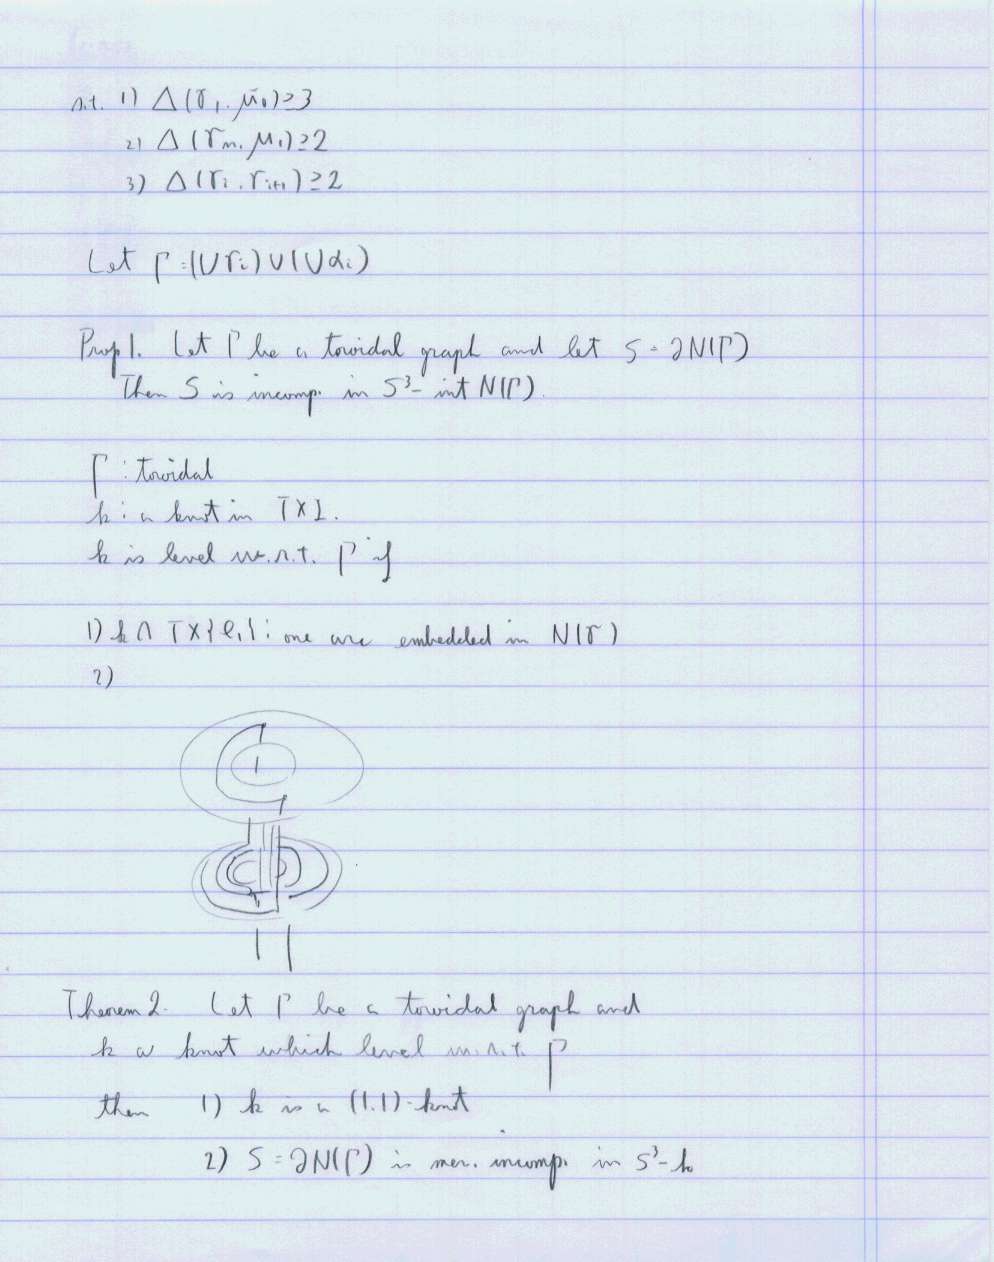 s.t. 1) Δ(γ₁, μ₀)≥3
2) Δ(γₙ, μ₁)≥2
3) Δ(γᵢ, γᵢ₊₁)≥2
Let Γ=(∪γᵢ)∪(∪αᵢ)
Prop 1. Let Γ be a toroidal graph and let S = ∂N(Γ)
Then S is incomp. in S³- int N(Γ).
Γ : toroidal
k : a knot in T×I.
k is level w.r.t. Γ if
1) k∩ T×{ℓᵢ} : one arc embedded in N(γ)
2)
Theorem 2. Let Γ be a toroidal graph and
k a knot which level w.r.t. Γ
then 1) k is a (1.1)-knot
2) S = ∂N(Γ) is mer. incomp. in S³-k